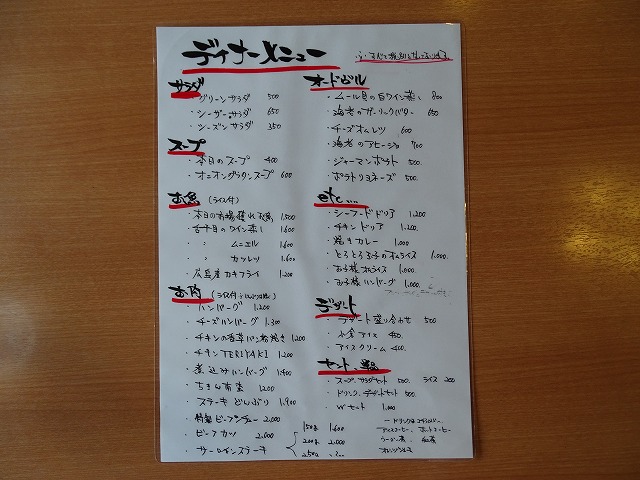 ディナーメニュー
サラダ
・グリーンサラダ 500
・シーザーサラダ 650
・シーズンサラダ 350
スープ
・本日のスープ 400
・オニオングラタンスープ 600
お魚 (ライス付)
・本日の市場獲れ天魚 1.500
のワイン蒸し 1.600
〃 ムニエル 1.600
〃 カツレツ 1.600
・広島産カキフライ 1.200
お肉
・ハンバーグ 1.200
・チーズハンバーグ 1.300
・チキンの香草パン粉焼き 1.200
・チキンTERIYAKI 1.200
・煮込みハンバーグ 1.400
・ちきん南蛮 1200
・ステーキどんぶり 1.900
・特製ビーフシチュー 2.000
・ビーフカツ 2.000
・サーロインステーキ
150g 1.600
200g 2.000
250g
オードビル
・ムール貝の白ワイン蒸し 800
・海老のガーリックバター 650
・チーズオムレツ 600
・海老のアヒージョ 700
・ジャーマンポテト 500
・ポテトリヨネーズ 500
etc....
・シーフードドリア 1.200
・チキンドリア 1.200
・焼きカレー 1.000
・とろとろ玉子のオムライス 1.000
・お子様オムライス 1.000
・お子様ハンバーグ 1.000
デザート
・デザート盛り合わせ 500
・小倉アイス 450
・アイスクリーム 400
セット
・スープ、サラダセット 500 ライス 200
・ドリンク、デザートセット 500
・Wセット 1.000
アイスコーヒー、ホットコーヒー
ウーロン茶、紅茶
オレンジジュース